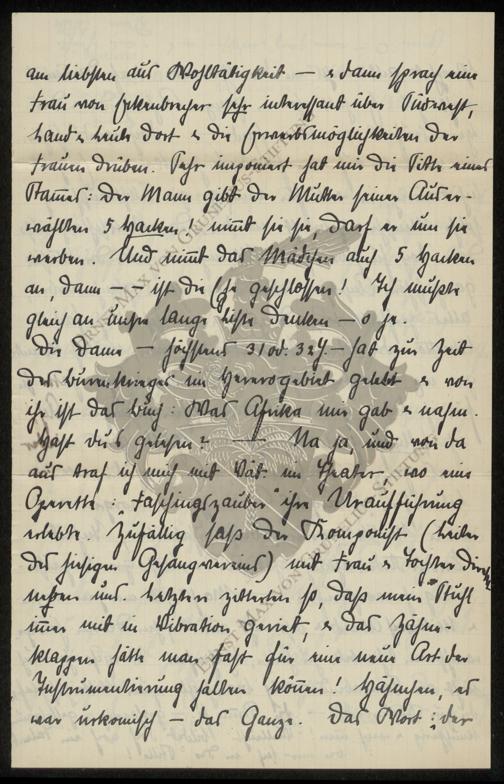 am liebsten aus Wohltätigkeit — & dann sprach eine
Frau von Eckenbrecher sehr interessant über Südwest,
Land & Leute dort & die Erwerbsmöglichkeiten der
Frauen drüben. Sehr imponiert hat mir die Sitte eines
Stam̄es: Der Mann gibt der Mutter seiner Auser-
wählten 5 Hacken! nim̄t sie sie, darf er um sie
werben. Und nim̄t das Mädchen auch 5 Hacken
an, dann — – ist die Ehe geschlossen! Ich mußte
gleich an unsre lange Liste denken — o je.
Die Dame — höchstens 31 od. 32 J. — hat zur Zeit
des Burenkrieges im Hererogebiet gelebt & von
ihr ist das Buch: Was Afrika mir gab & nahm.
Hast du's gelesen? — Na ja und von da
aus traf ich mich mit Vät. im Theater, wo eine
Operette: "Faschingszauber" ihre Uraufführung
erlebte. Zufällig saß der Komponist (Leiter
des hiesigen Gesangvereins) mit Frau & Tochter direkt
neben uns. Letztere zitterten so, daß mein Stuhl
im̄er mit in Vibration geriet, & das Zähne-
klappen hätte man fast für eine neue Art der
Instrumentierung halten kön̄en! Häschen, es
war urkomisch — das Ganze. Das Wort: der
ERNST MAX VON GRUNELIUS-STIFTUNG
ERNST MAX VON GRUNELIUS-STIFTUNG